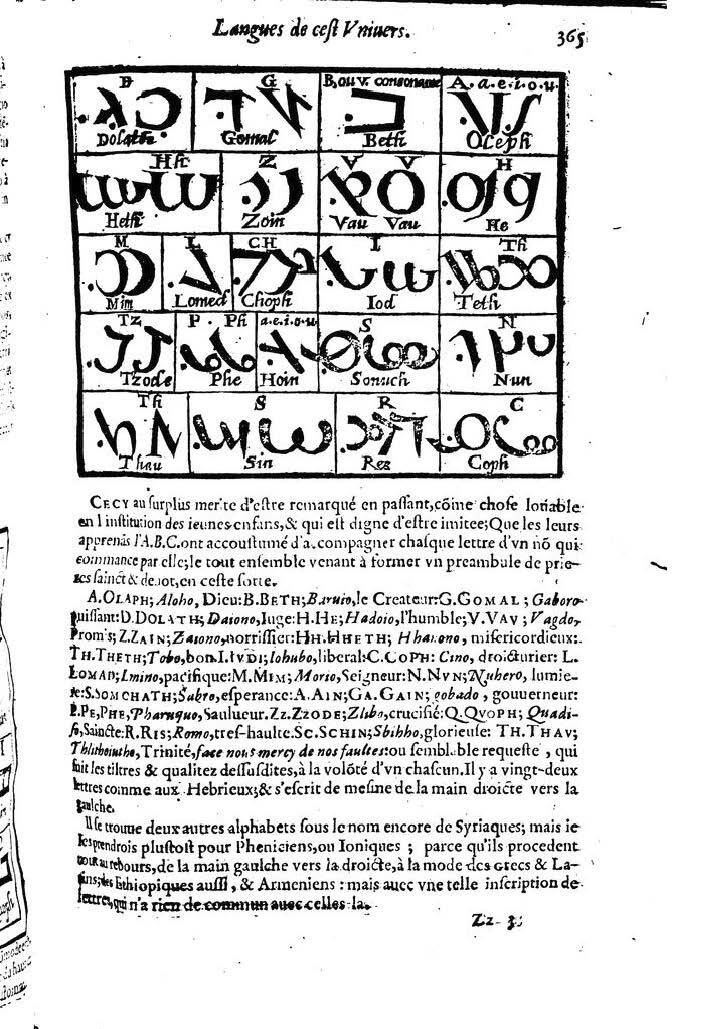 Langues de ceſt Vniuers.
365
D G B, ou v. conſonante A. a.e.i.o.u.
Gomal Beth Oleph
Hh Z V V H
Heth Zoin Vau Vau He
M L CH I Th
Mim Lomed Choph Iod Teth
Tz P. Ph a.e.i.o.u S N
Tzode Phe Hoin Nun
Th S R C
Thau Sin Res Coph
CECY au ſurplus merite d'eſtre remarqué en paſſant, cõme choſe loüable
en l'inſtitution des ieunes enfans, & qui eſt digne d'eſtre imitee; Que les leurs
apprenãs l'A.B.C. ont accouſtumé d'acompagner chaſque lettre d'vn nõ qui
commance par elle; le tout enſemble venant à former vn preambule de prie-
res ſainct & deuot, en ceſte ſorte.
A. OLAPH; Aloho, Dieu: B. BETH; Baruio, le Createur: G. GOMAL; Gaboro
puiſſant: D. DOLATH; Daiono, Iuge: H. HE; Hadoio, l'humble; V. VAV; Vagdo,
Promis; Z. ZAIN; Zaiono, norriſſier: HH. HHETH; Hhanono, miſericordieux:
TH. THETH; Tobo, bon. I. IVDI; Iohubo, liberal: C. COPH: Cino, droicturier: L.
LOMAD; Lmino, pacifique: M. MIM; Morio, Seigneur: N. NVN; Nuhero, lumie-
re: S. SOMCHATH; Sabro, eſperance: A. AIN; GA. GAIN; gobado, gouuerneur:
P. PE, PHE, Pharuquo, Saulueur. Zz. ZZODE; Zlibo, crucifié: Q. QVOPH; Quadi-
ſo, Saincte: R. RIS; Romo, treſ-haulte: Sc. SCHIN; Sbihho, glorieuſe: TH. THAV;
Thlithoiutho, Trinité, face nous mercy de nos faultes: ou ſemblable requeſte, qui
ſuit les tiltres & qualitez deſſuſdites, à la volõté d'vn chaſcun. Il y a vingt-deux
lettres comme aux Hebrieux; & s'eſcrit de meſme de la main droicte vers la
gaulche.
Il ſe trouue deux autres alphabets ſous le nom encore de Syriaques; mais ie
les prendrois pluſtoſt pour Pheniciens, ou Ioniques; parce qu'ils procedent
tout au rebours, de la main gaulche vers la droicte, à la mode des Grecs & La-
tins; des Ethiopiques auſſi, & Armeniens: mais auec vne telle inſcription de
lettres, qui n'a rien de commun auec celles-la.
Zz 3